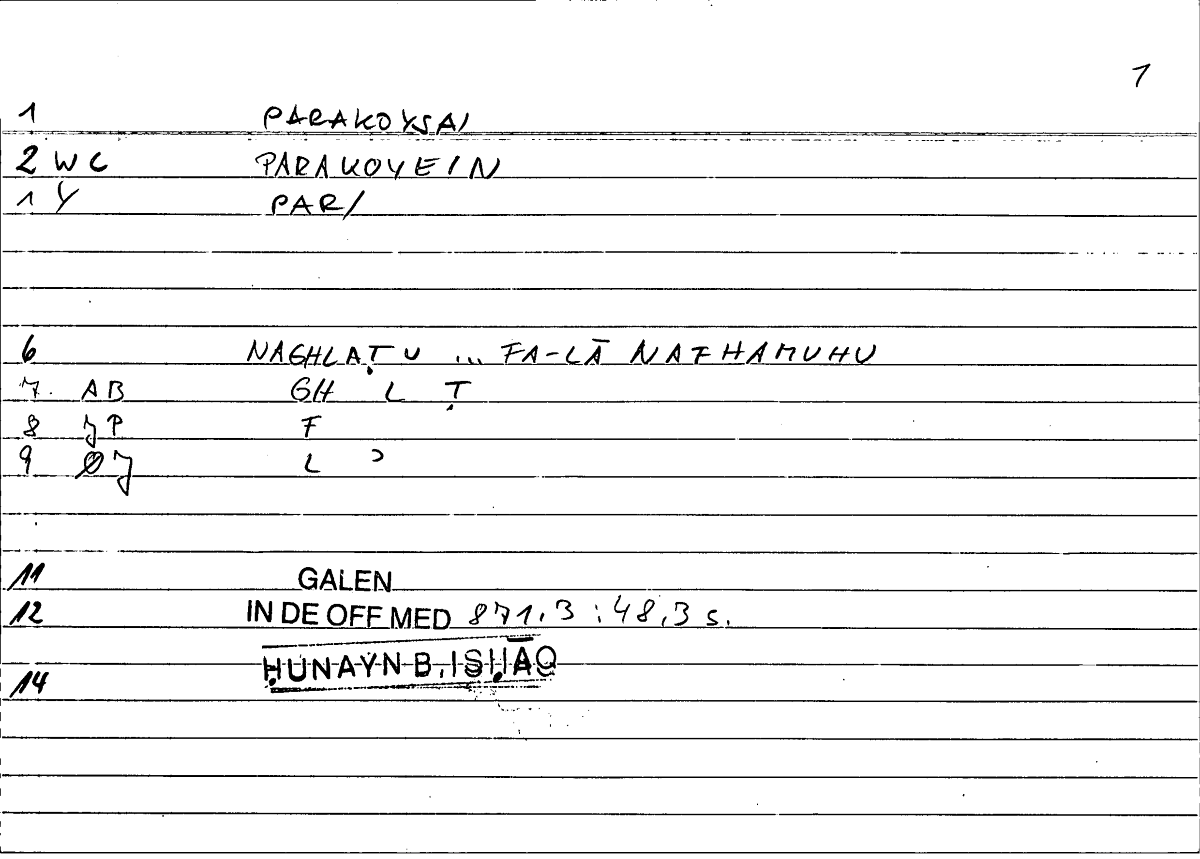 1
1 PARAKOYSAI
2 WC PARAKOYEIN
1 Y PAR/
6 NAGHLAṬU ... FA-LĀ NAFHAMUHU
7. AB GH L Ṭ
8 JP F
9 ØJ L ͗
11 GALEN
12 IN DE OFF MED 871,3 : 48,3 s.
ḤUNAYN B. ISḤĀQ
14